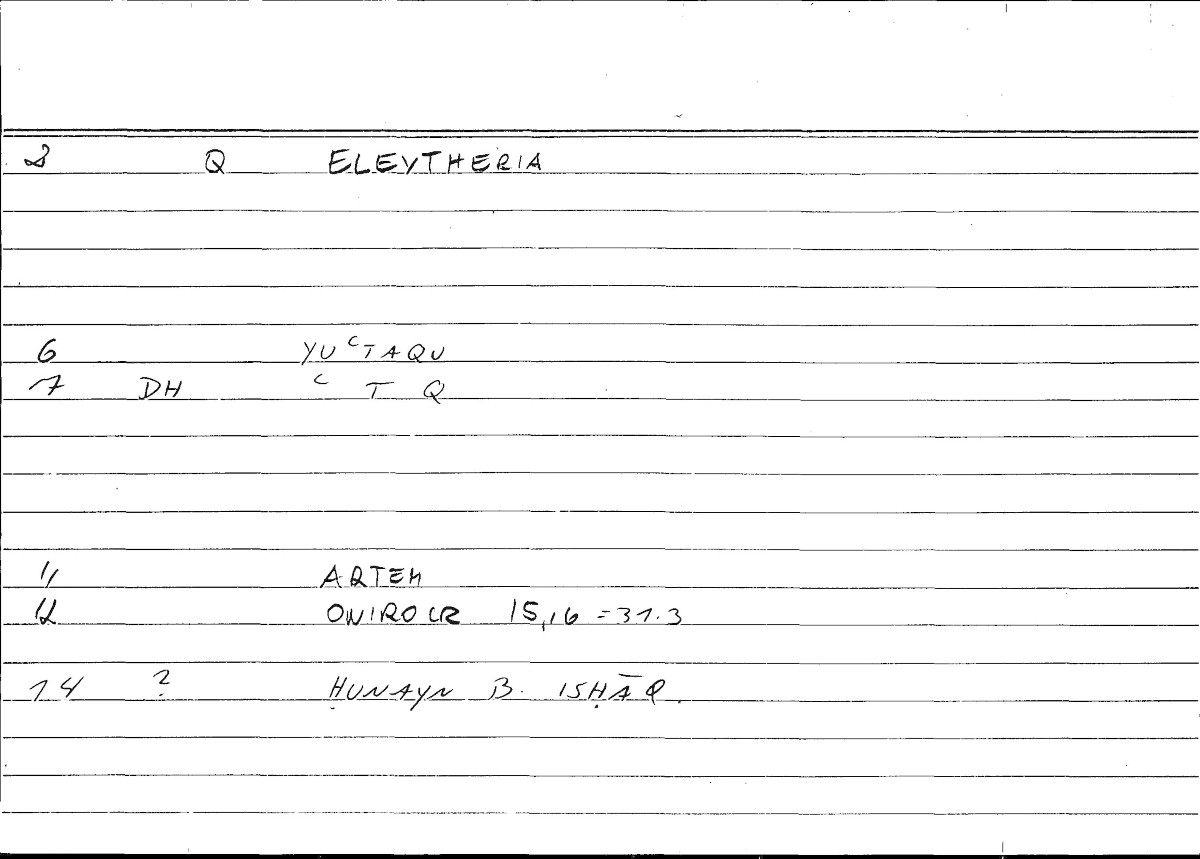 2 Q ELEYTHERIA
6 YU ʿTAQU
7 DH ʿ T Q
11 ARTEM
12 ONIROCR 15,16 = 31.3
14 ? ḤUNAYN B. ISḤĀQ.